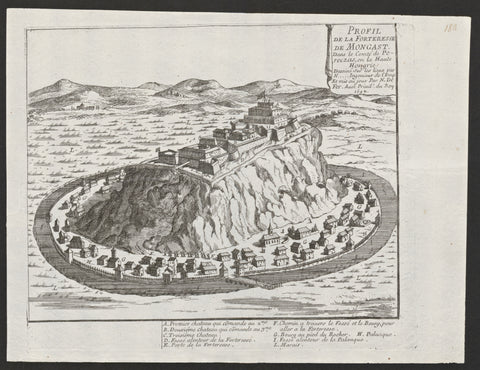 PROFIL
DE LA FORTERESSE
DE MONGAST.
Dans le Comté de Pe-
reczas, en la Haute
Hongrie.
Dessiné sur les lieux par
N.... Ingenieur de l'Emp.
Et mis au jour Par N. De
Fer. Avec Privil. du Roy
A. Premier chateau qui cõmande au 2me
B. Deuxiéme chateau qui cõmande au 3me
C. Troisiéme Chateau.
D. Fossé alentour de la Forteresse.
E. Porte de la Forteresse.
F. Chemin a travers le Fossé et le Bourg, pour
aller a la Forteresse.
G. Bourg au pied du Rocher. H. Palanque.
I. Fossé alentour de la Palanque.
L. Marais.
L
L
L